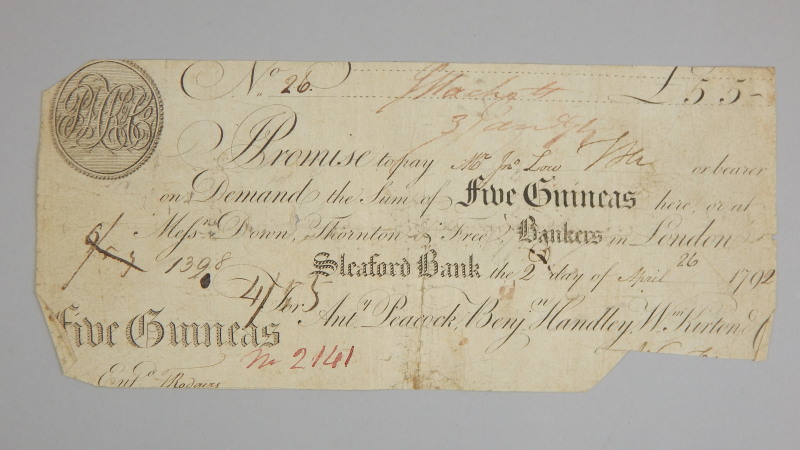 No. 26. £5 5 -
I Promise to pay Mr. Jno. Low or bearer
on Demand the Sum of Five Guineas here, or at
Messrs. Down, Thornton & Free, Bankers in London
1398 Sleaford Bank the 2 day of April 26 1792
4/ For 5 Anty. Peacock, Benjn. Handley, Wm. Kirton &
Five Guineas
No 2141
Entd. Rodgers